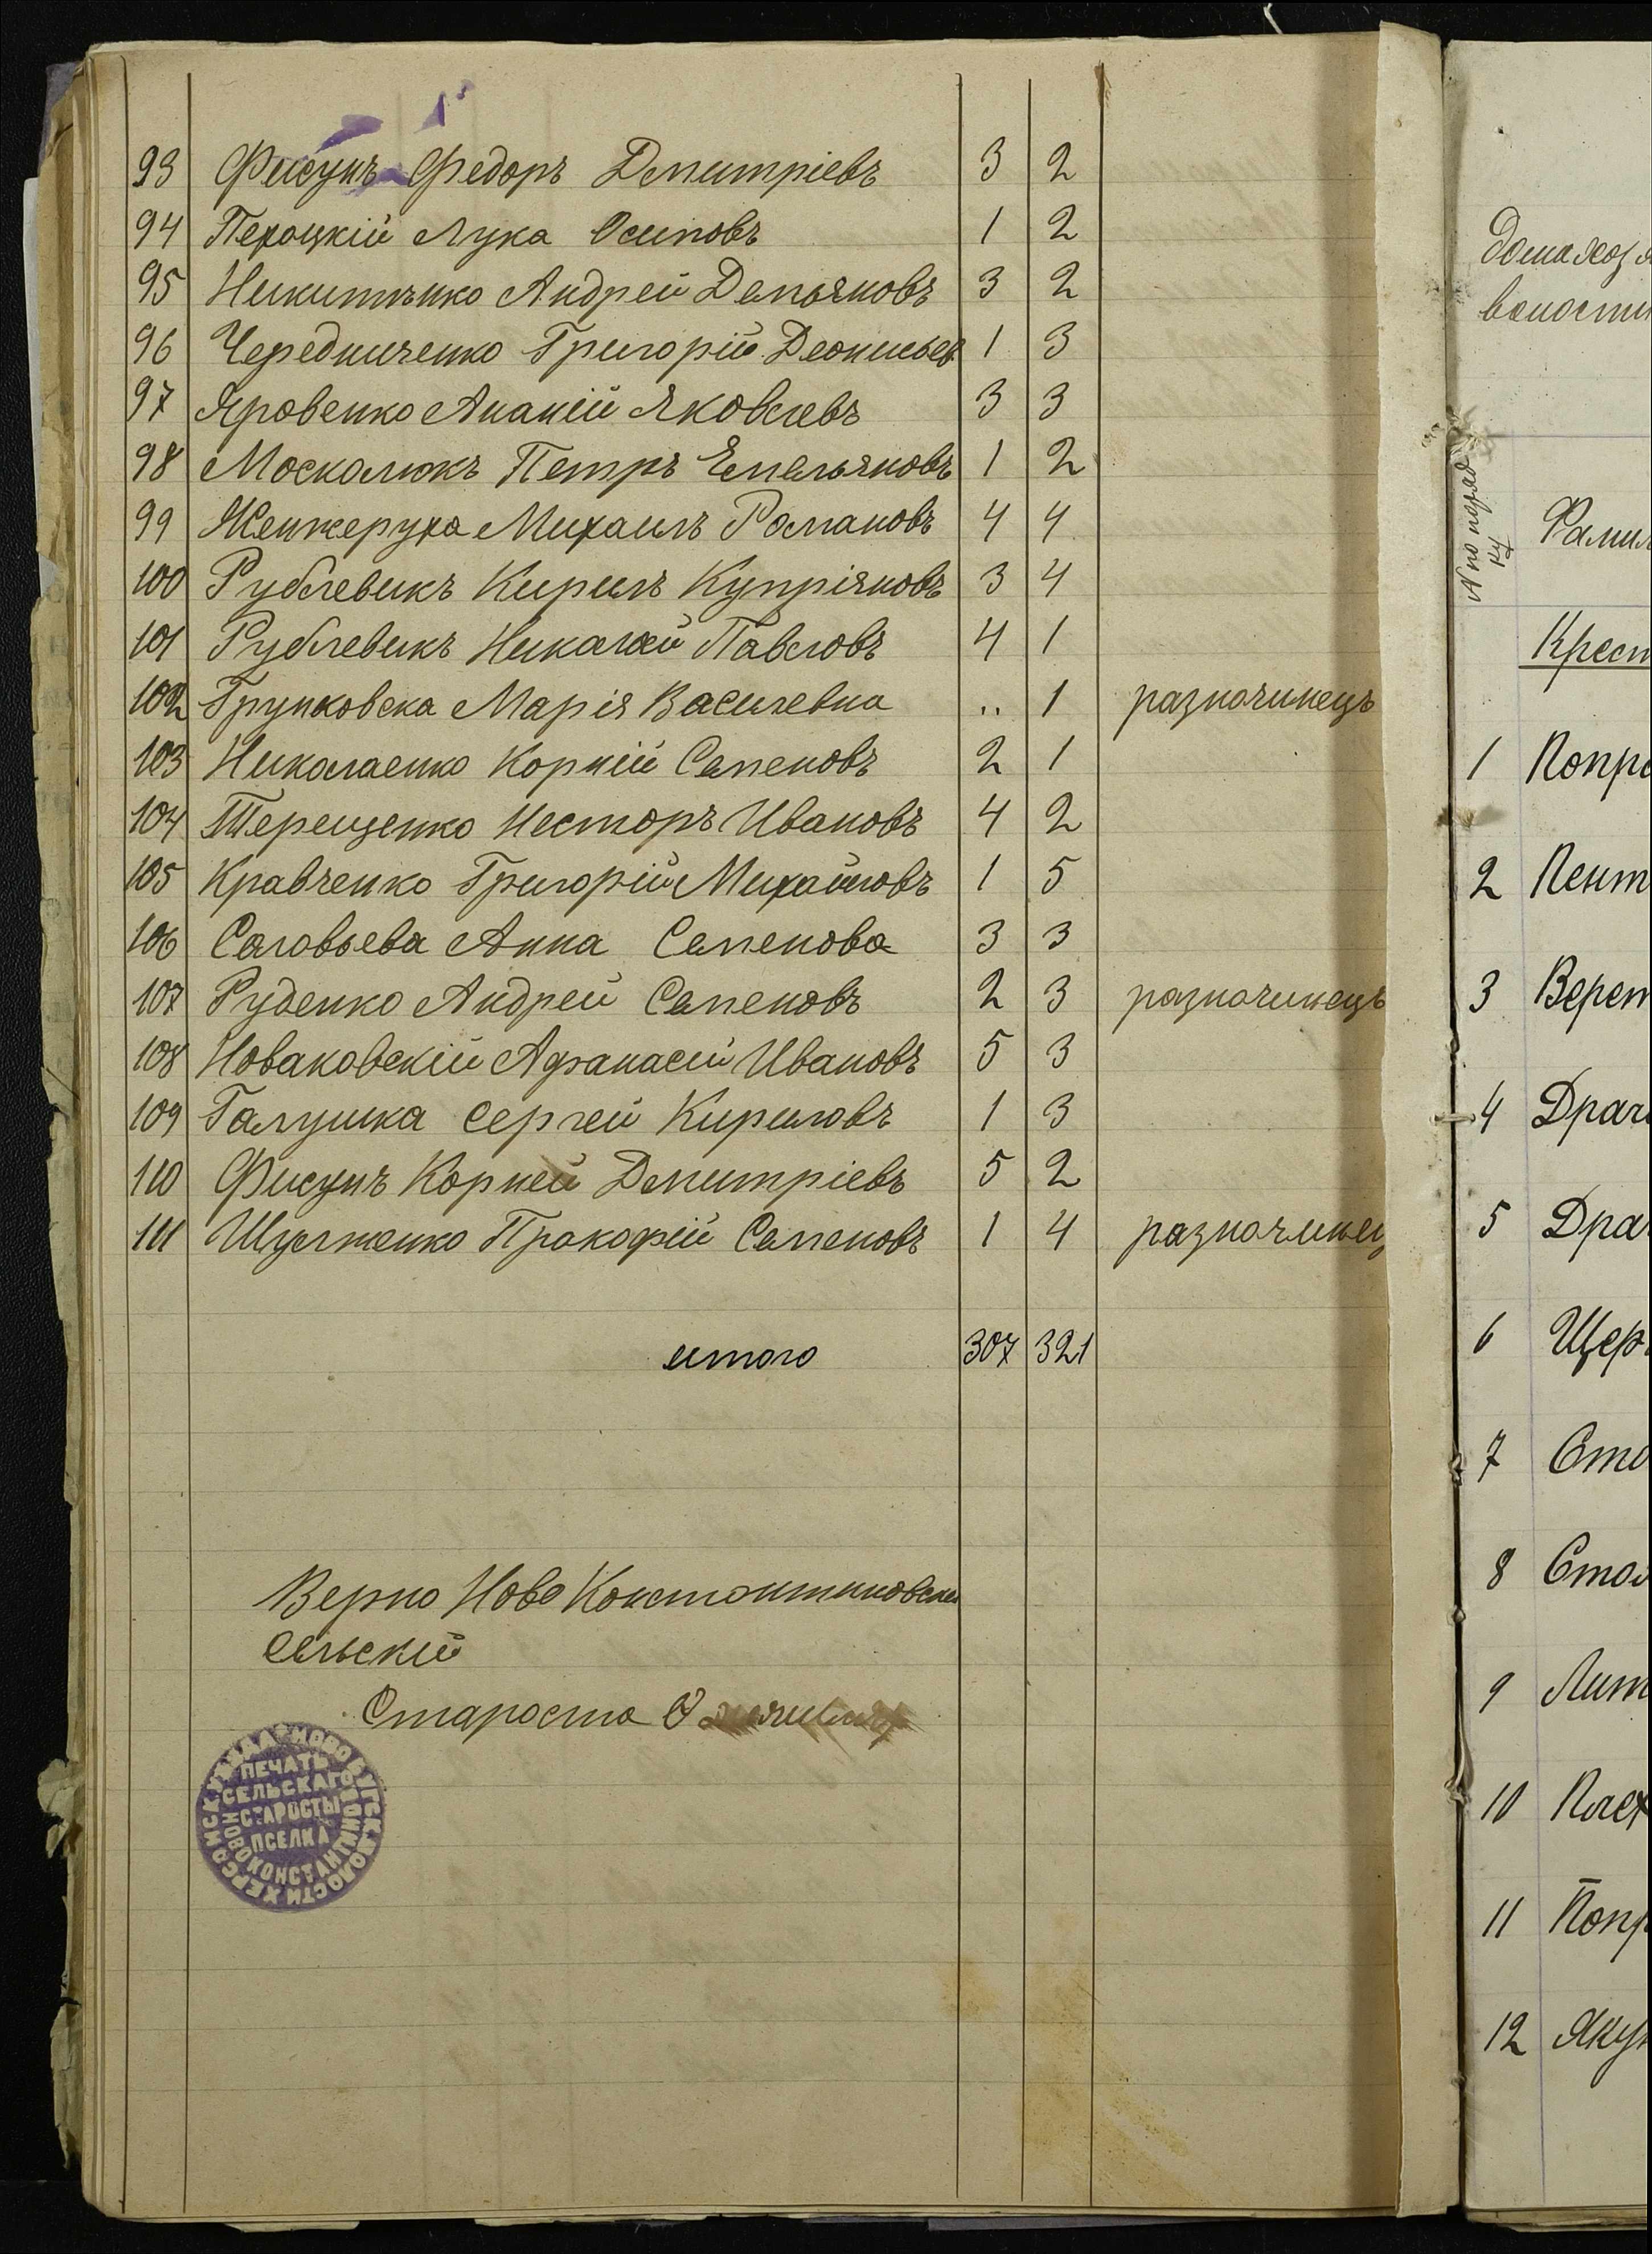 93 Фисунъ Федоръ Дмитріевъ 3 2
94 Пехоцкій Лука Осиповъ 1 2
95 Никитенко Андрей Демьяновъ 3 2
96 Чередниченко Григорій Деонисьев 1 3
97 Яровенко Ананій Яковлевъ 3 3
98 Москалюкъ Петръ Емельяновъ 1 2
99 Женжеруха Михаилъ Романовъ 4 4
100 Рублевикъ Кирилъ Купріяновъ 3 4
101 Рублевикъ Николай Павловъ 4 1
102 Марія Василевна .. 1 разночинецъ
103 Николаенко Корній Семеновъ 2 1
104 Терещенко Несторъ Ивановъ 4 2
105 Кравченко Григорій Михайловъ 1 5
106 Соловьева Анна Семенова 3 3
107 Руденко Андрей Семеновъ 2 3 разночинецъ
108 Новаковскій Афанасій Ивановъ 5 3
109 Галушка Сергей Кириловъ 1 3
110 Фисунъ Корней Дмитріевъ 5 2
111 Шулженко Прокофій Семеновъ 1 4 разночинец
итого 307 321
Верно Ново Константиновский
Сельскій
Староста
ХЕРСОНСК. УѢЗДА НОВО БУГСК. ВОЛОСТИ
ПЕЧАТЬ
СЕЛЬСКАГО
СТАРОСТЫ
ПСЕЛКА
НОВОКОНСТАНТИНОВ
домахозя
волости
№ по поряд
ку
Фамил
Крест
1 Попра
2 Пент
3 Верет
4 Драч
5 Дра
6 Щер
7 Сто
8 Стол
9 Лит
10 Плех
11 Попр
12 Яку